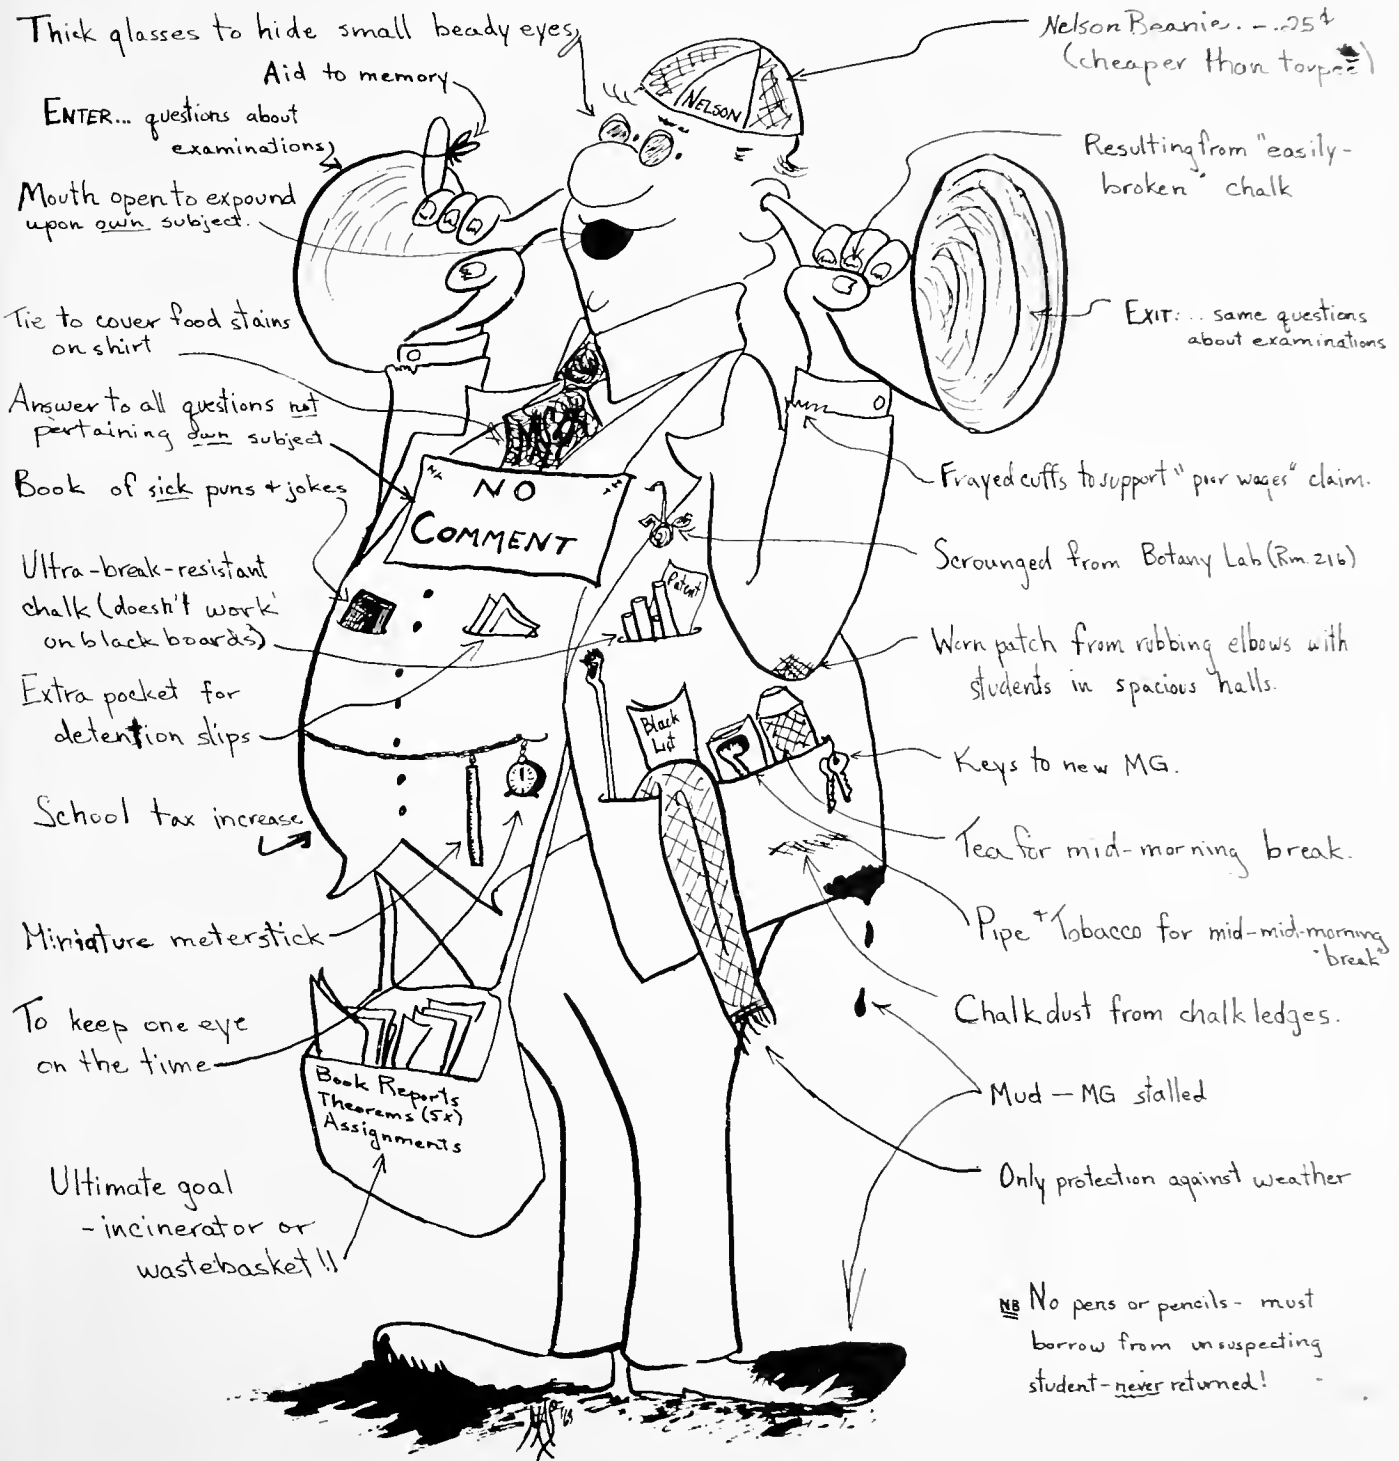 Thick glasses to hide small beady eyes
Aid to memory
ENTER... questions about
examinations
Mouth open to expound
upon own subject.
Tie to cover food stains
on shirt
Answer to all questions not
pertaining own subject
Book of sick puns + jokes
Ultra-break-resistant
chalk (doesn't work
on black boards)
Extra pocket for
detention slips
School tax increase
Miniature meterstick
To keep one eye
on the time
Ultimate goal
- incinerator or
wastebasket!!
NELSON
NO
COMMENT
Patent
Black
List
Book Reports
Theorems (5x)
Assignments
Nelson Beanie. - .25¢
(cheaper than toupee)
Resulting from "easily-
broken" chalk
EXIT:... same questions
about examinations
Frayed cuffs to support "poor wages" claim.
Scrounged from Botany Lab (Rm. 216)
Worn patch from rubbing elbows with
students in spacious halls.
Keys to new MG.
Tea for mid-morning break.
Pipe + Tobacco for mid-mid-morning
"break"
Chalk dust from chalk ledges.
Mud - MG stalled
Only protection against weather
NB No pens or pencils - must
borrow from unsuspecting
student - never returned!